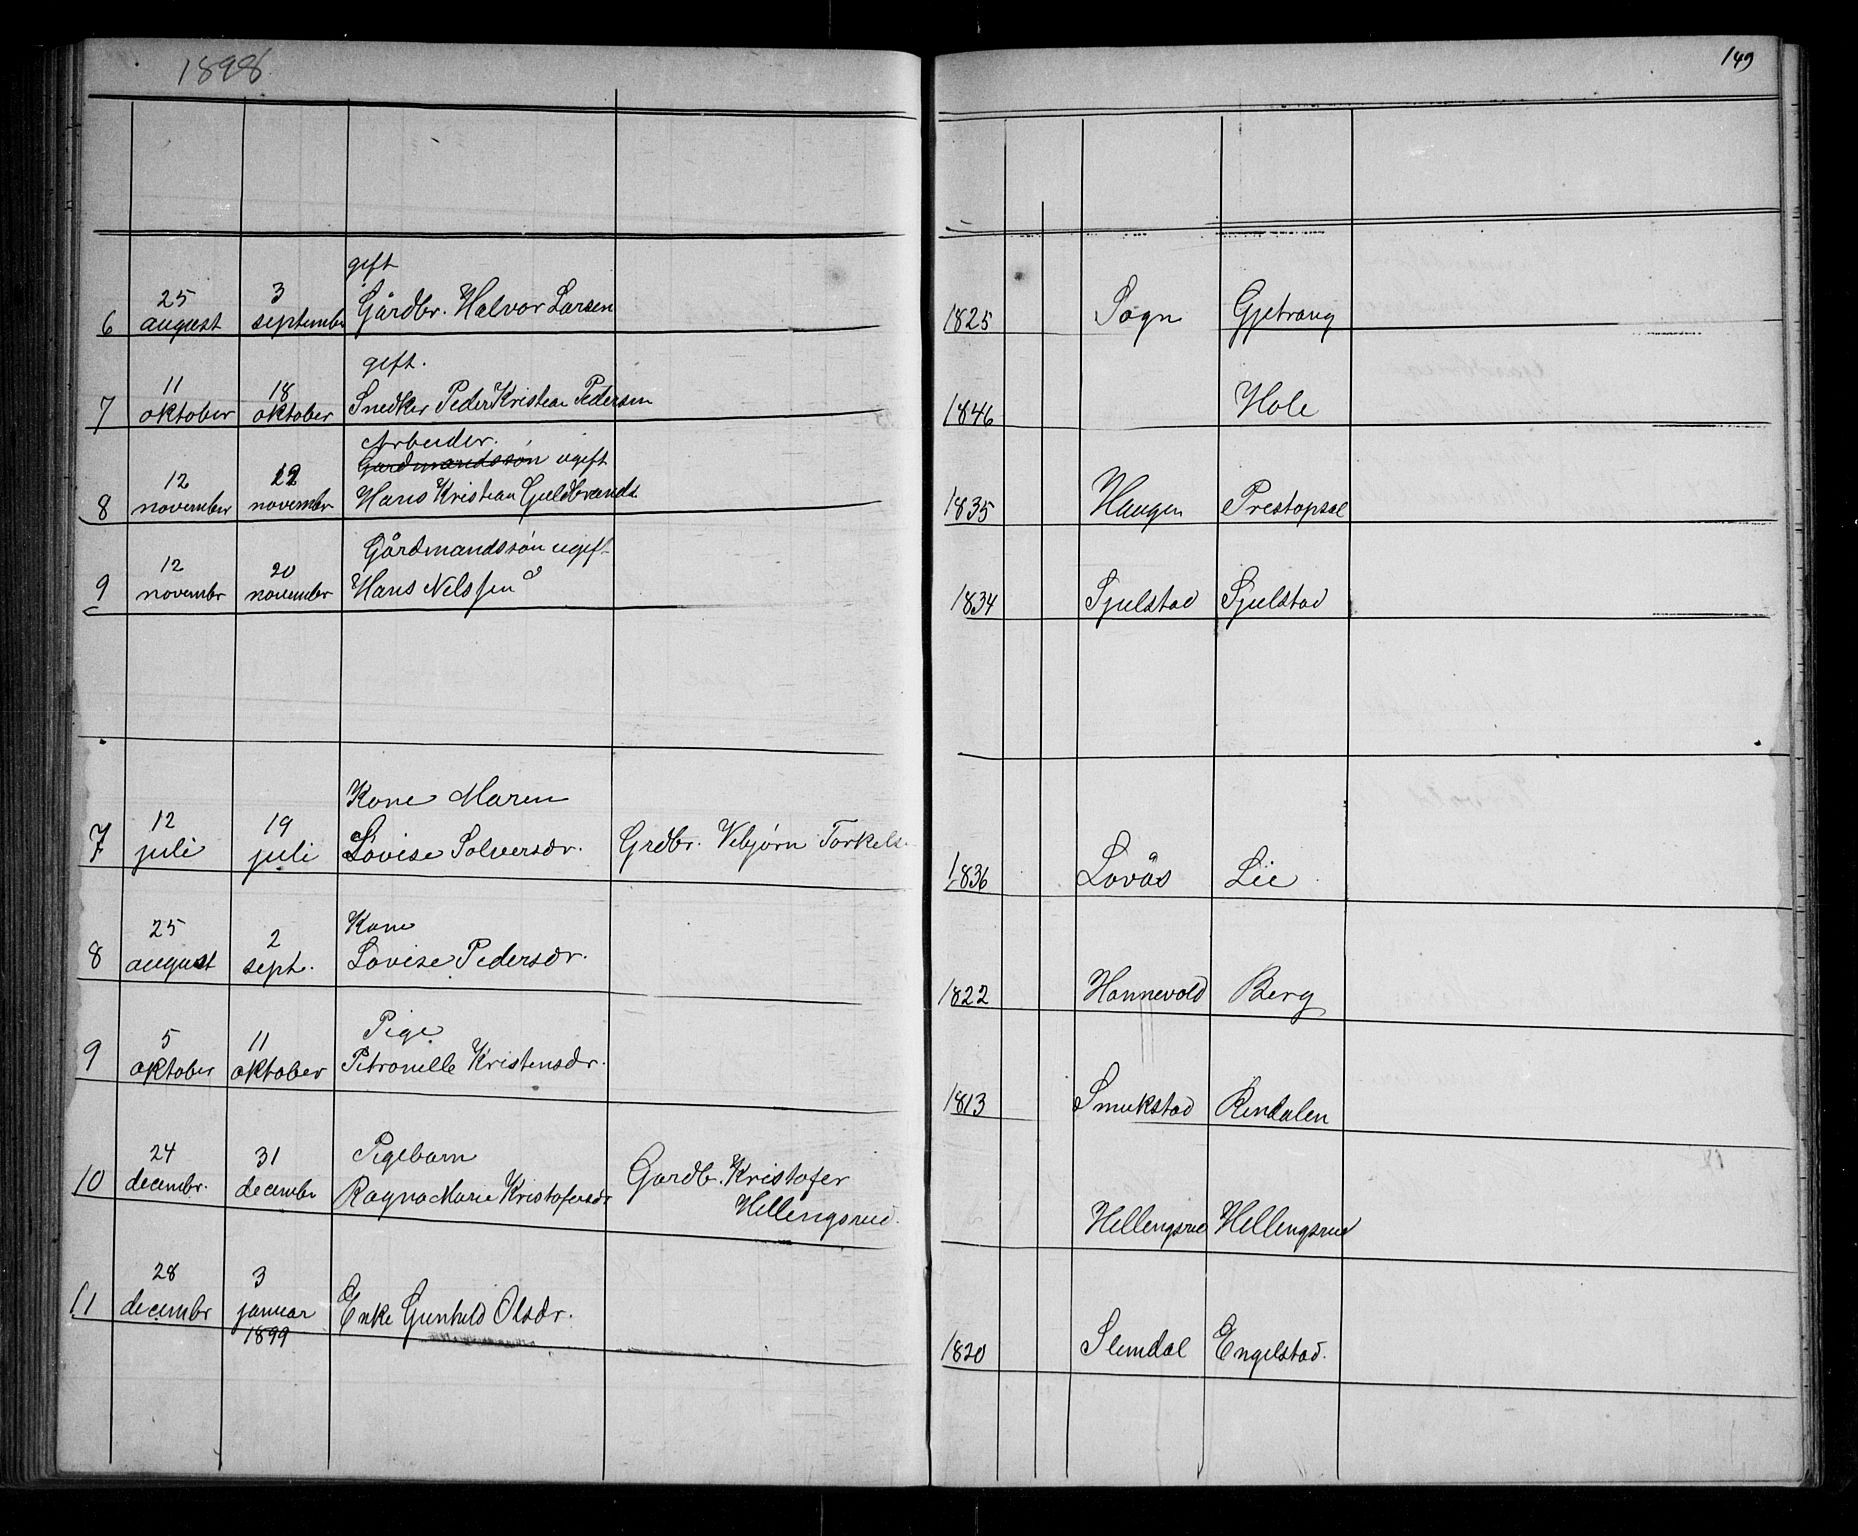 1898
149
gift
6 25 august 3 septembr Gårdbr. Halvor Larsen 1825 Sogn Gjetrang
gift.
7 11 oktober 18 oktober Snedker Peder Kristian Pedersen 1846 Hole
Arbeider.
Gardmandssøn ugift
8 12 november 22 november Hans Kristian Guldbrands. 1835 Haugen Prestopsal
Gårdmandssøn ugift
9 12 novembr 20 november Hans Nelssen 1834 Sjulstad Sjulstad
Kone Maren
7 12 juli 19 juli Lovise Solversdr. Grdbr. Vebjørn Torkels. 1836 Lovås Lie
Kone
8 25 august 2 sept. Lovise Pedersdr. 1822 Hannevold Berg
Pige
9 5 oktober 11 oktober Petronelle Kristensdr. 1813 Smukstad Rindalen
Pigebarn Gardb. Kristofer
10 24 decembr. 31 decembr Ragna Marie Kristofersdr Hellengsrud. Hellengsrud Hellengsrud
11 28 decembr 3 januar 1899 Enke Gunhild Olsdr. 1820 Slemdal Engelstad.